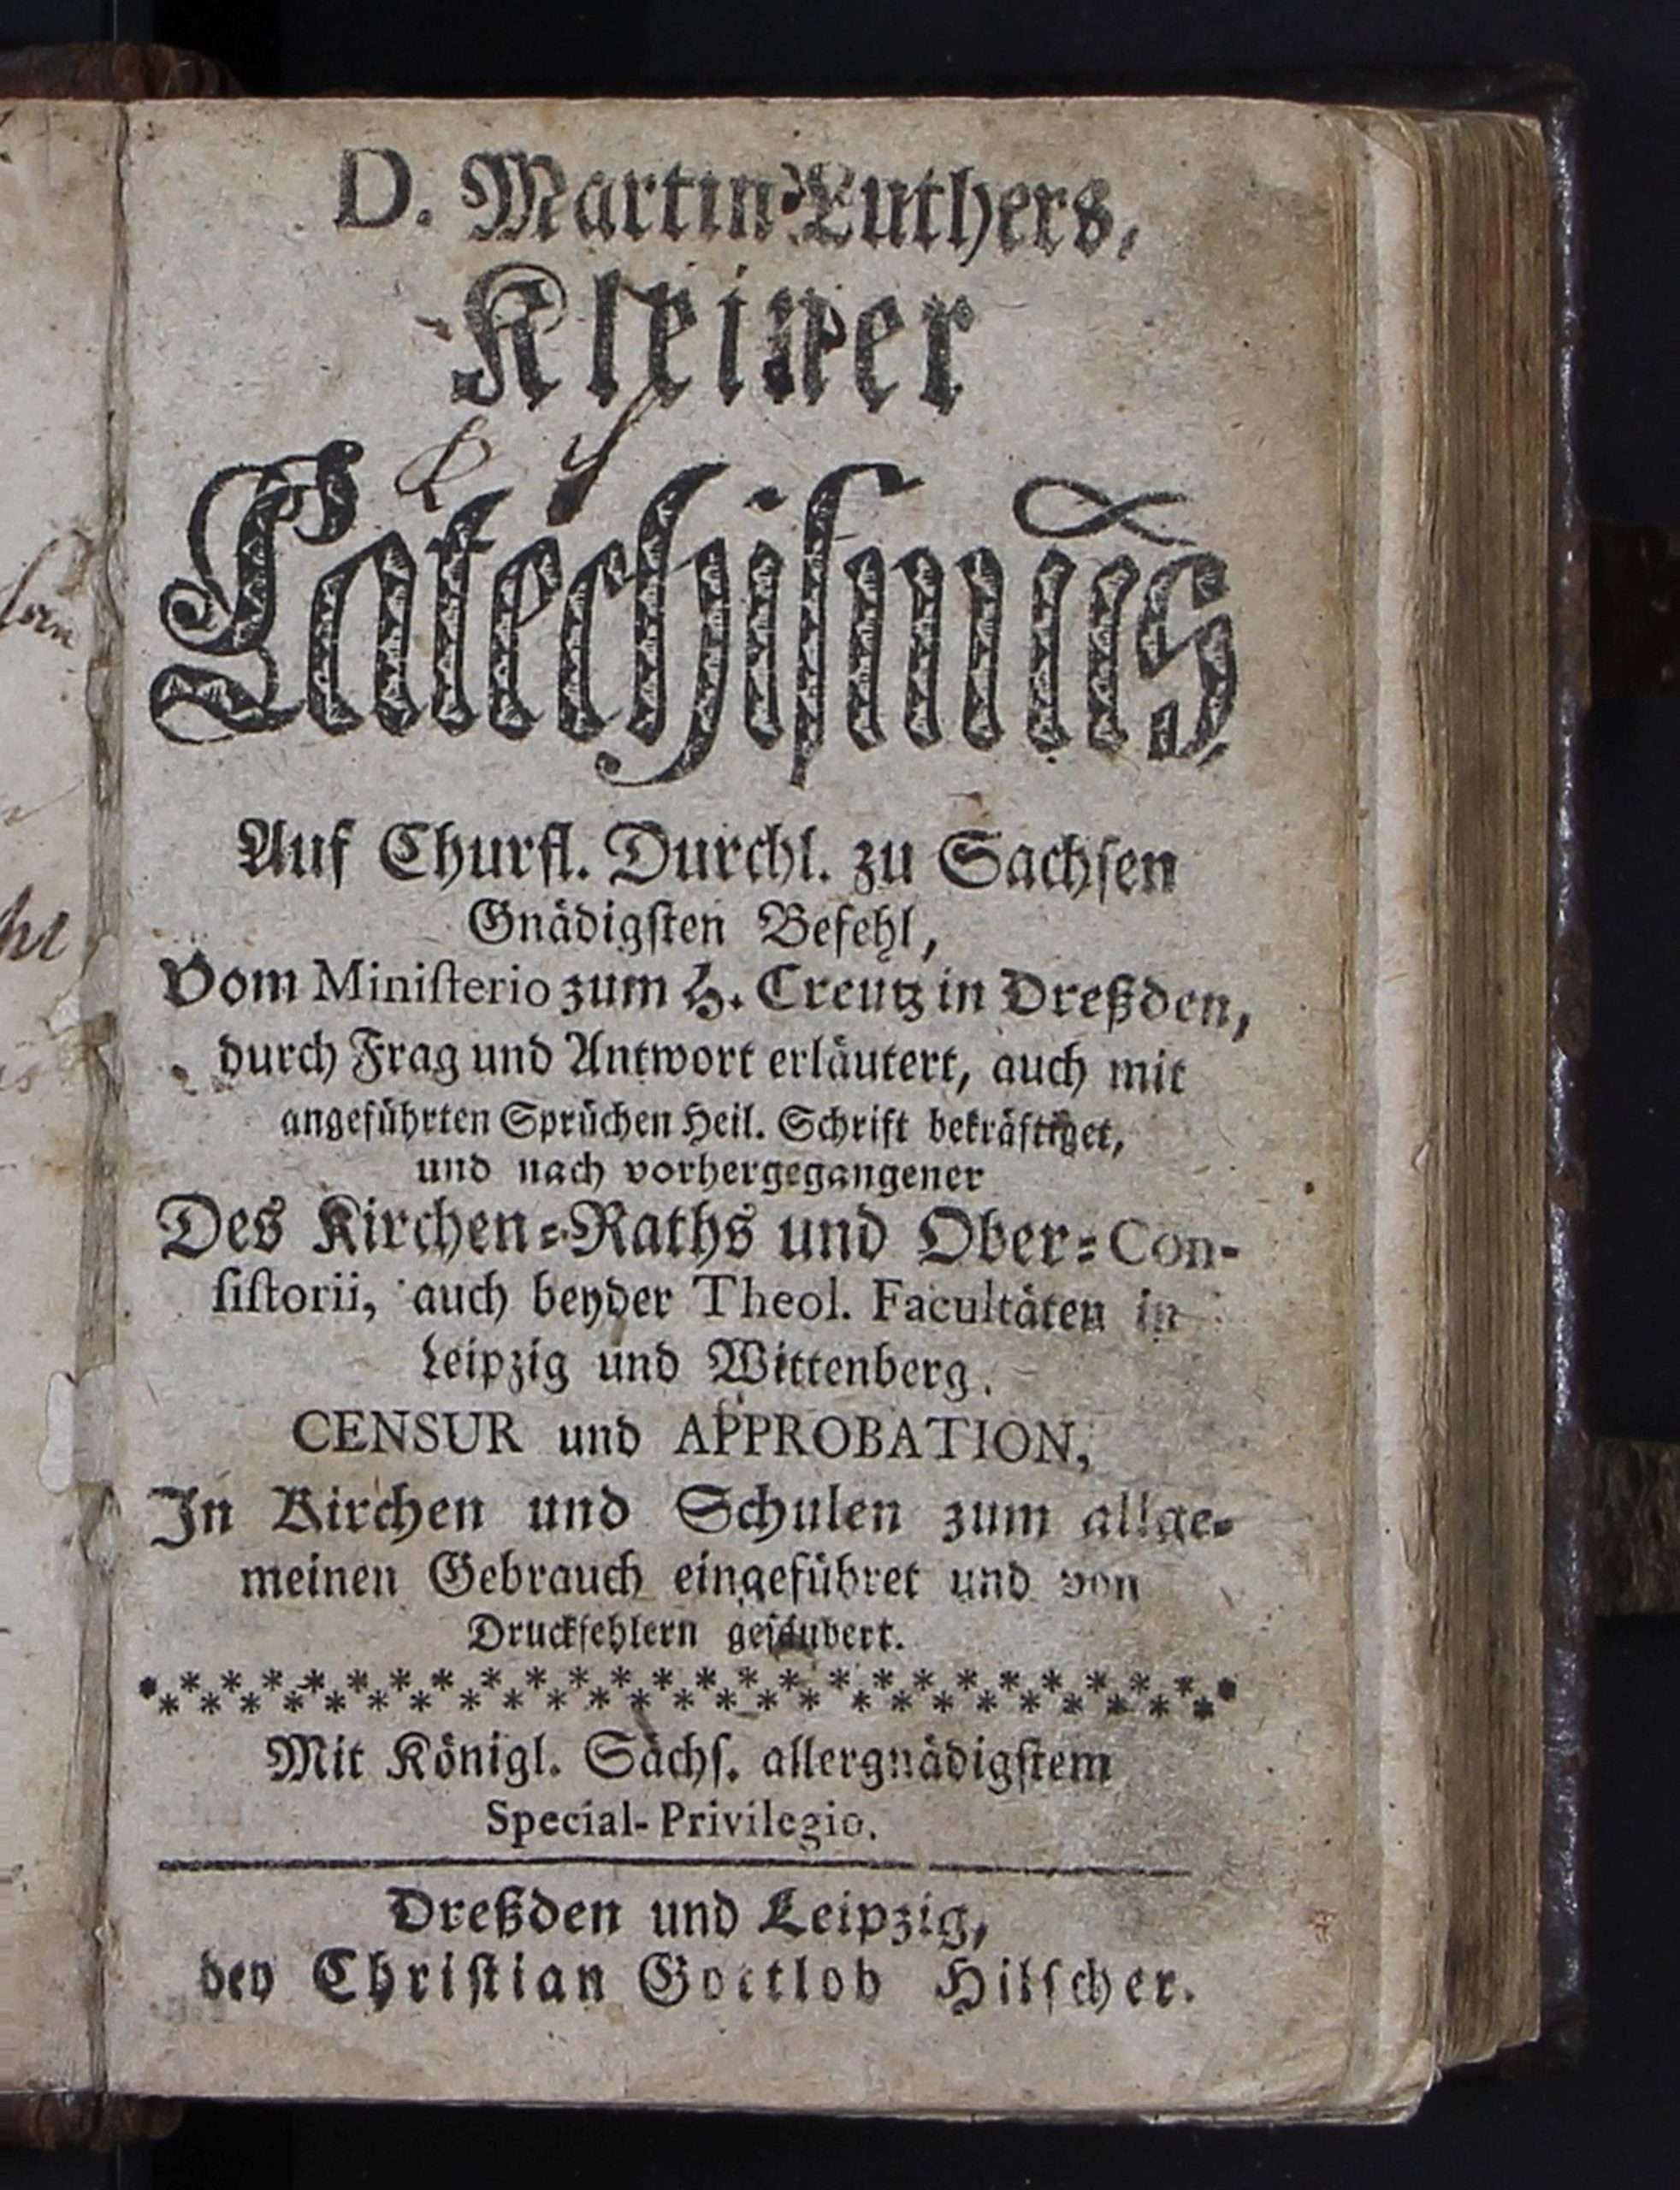 D. Martin Luthers,
Kleiner
Catechismus
Auf Churfl. Durchl. zu Sachsen
Gnädigsten Befehl,
Vom Ministerio zum H. Creutz in Dreßden,
durch Frag und Antwort erläutert, auch mit
angeführten Sprüchen Heil. Schrift bekräftiget,
und nach vorhergegangener
Des Kirchen-Raths und Ober-Con-
sistorii, auch beyder Theol. Facultäten in
Leipzig und Wittenberg.
CENSUR und APPROBATION,
In Kirchen und Schulen zum allge-
meinen Gebrauch eingeführet und von
Druckfehlern gesäubert.
Mit Königl. Sächs. allergnädigstem
Special-Privilegio.
Dreßden und Leipzig,
bey Christian Gottlob Hilscher.